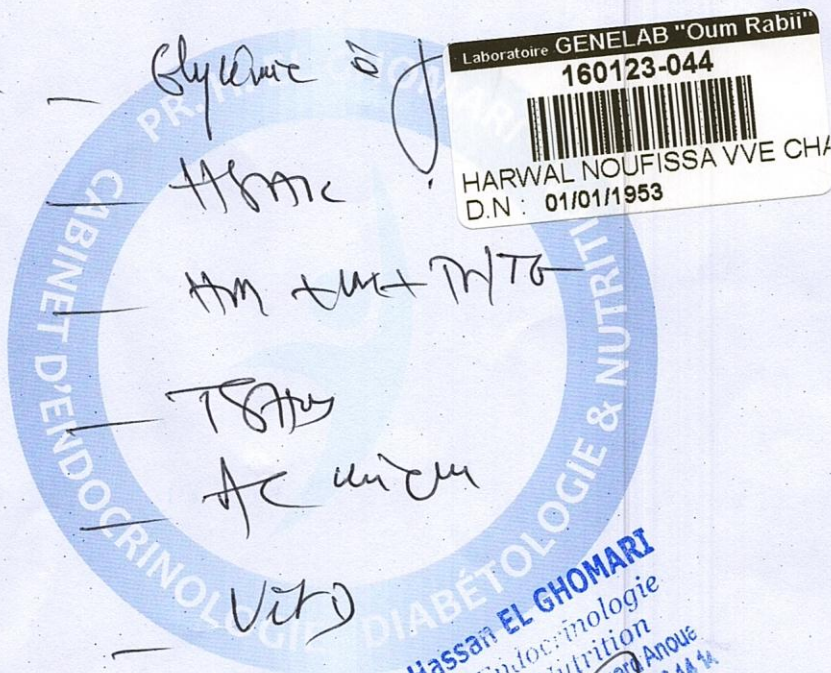 Laboratoire GENELAB "Oum Rabii"
160123-044
HARWAL NOUFISSA VVE CHA
D.N : 01/01/1953
_ Glycémie à j
_ HbA1c
_ TSHus
_ Ac urique
_ Vit D
CABINET D'ENDOCRINOLOGIE DIABÉTOLOGIE & NUTRITI
Hassan EL GHOMARI
Endocrinologie
Nutrition